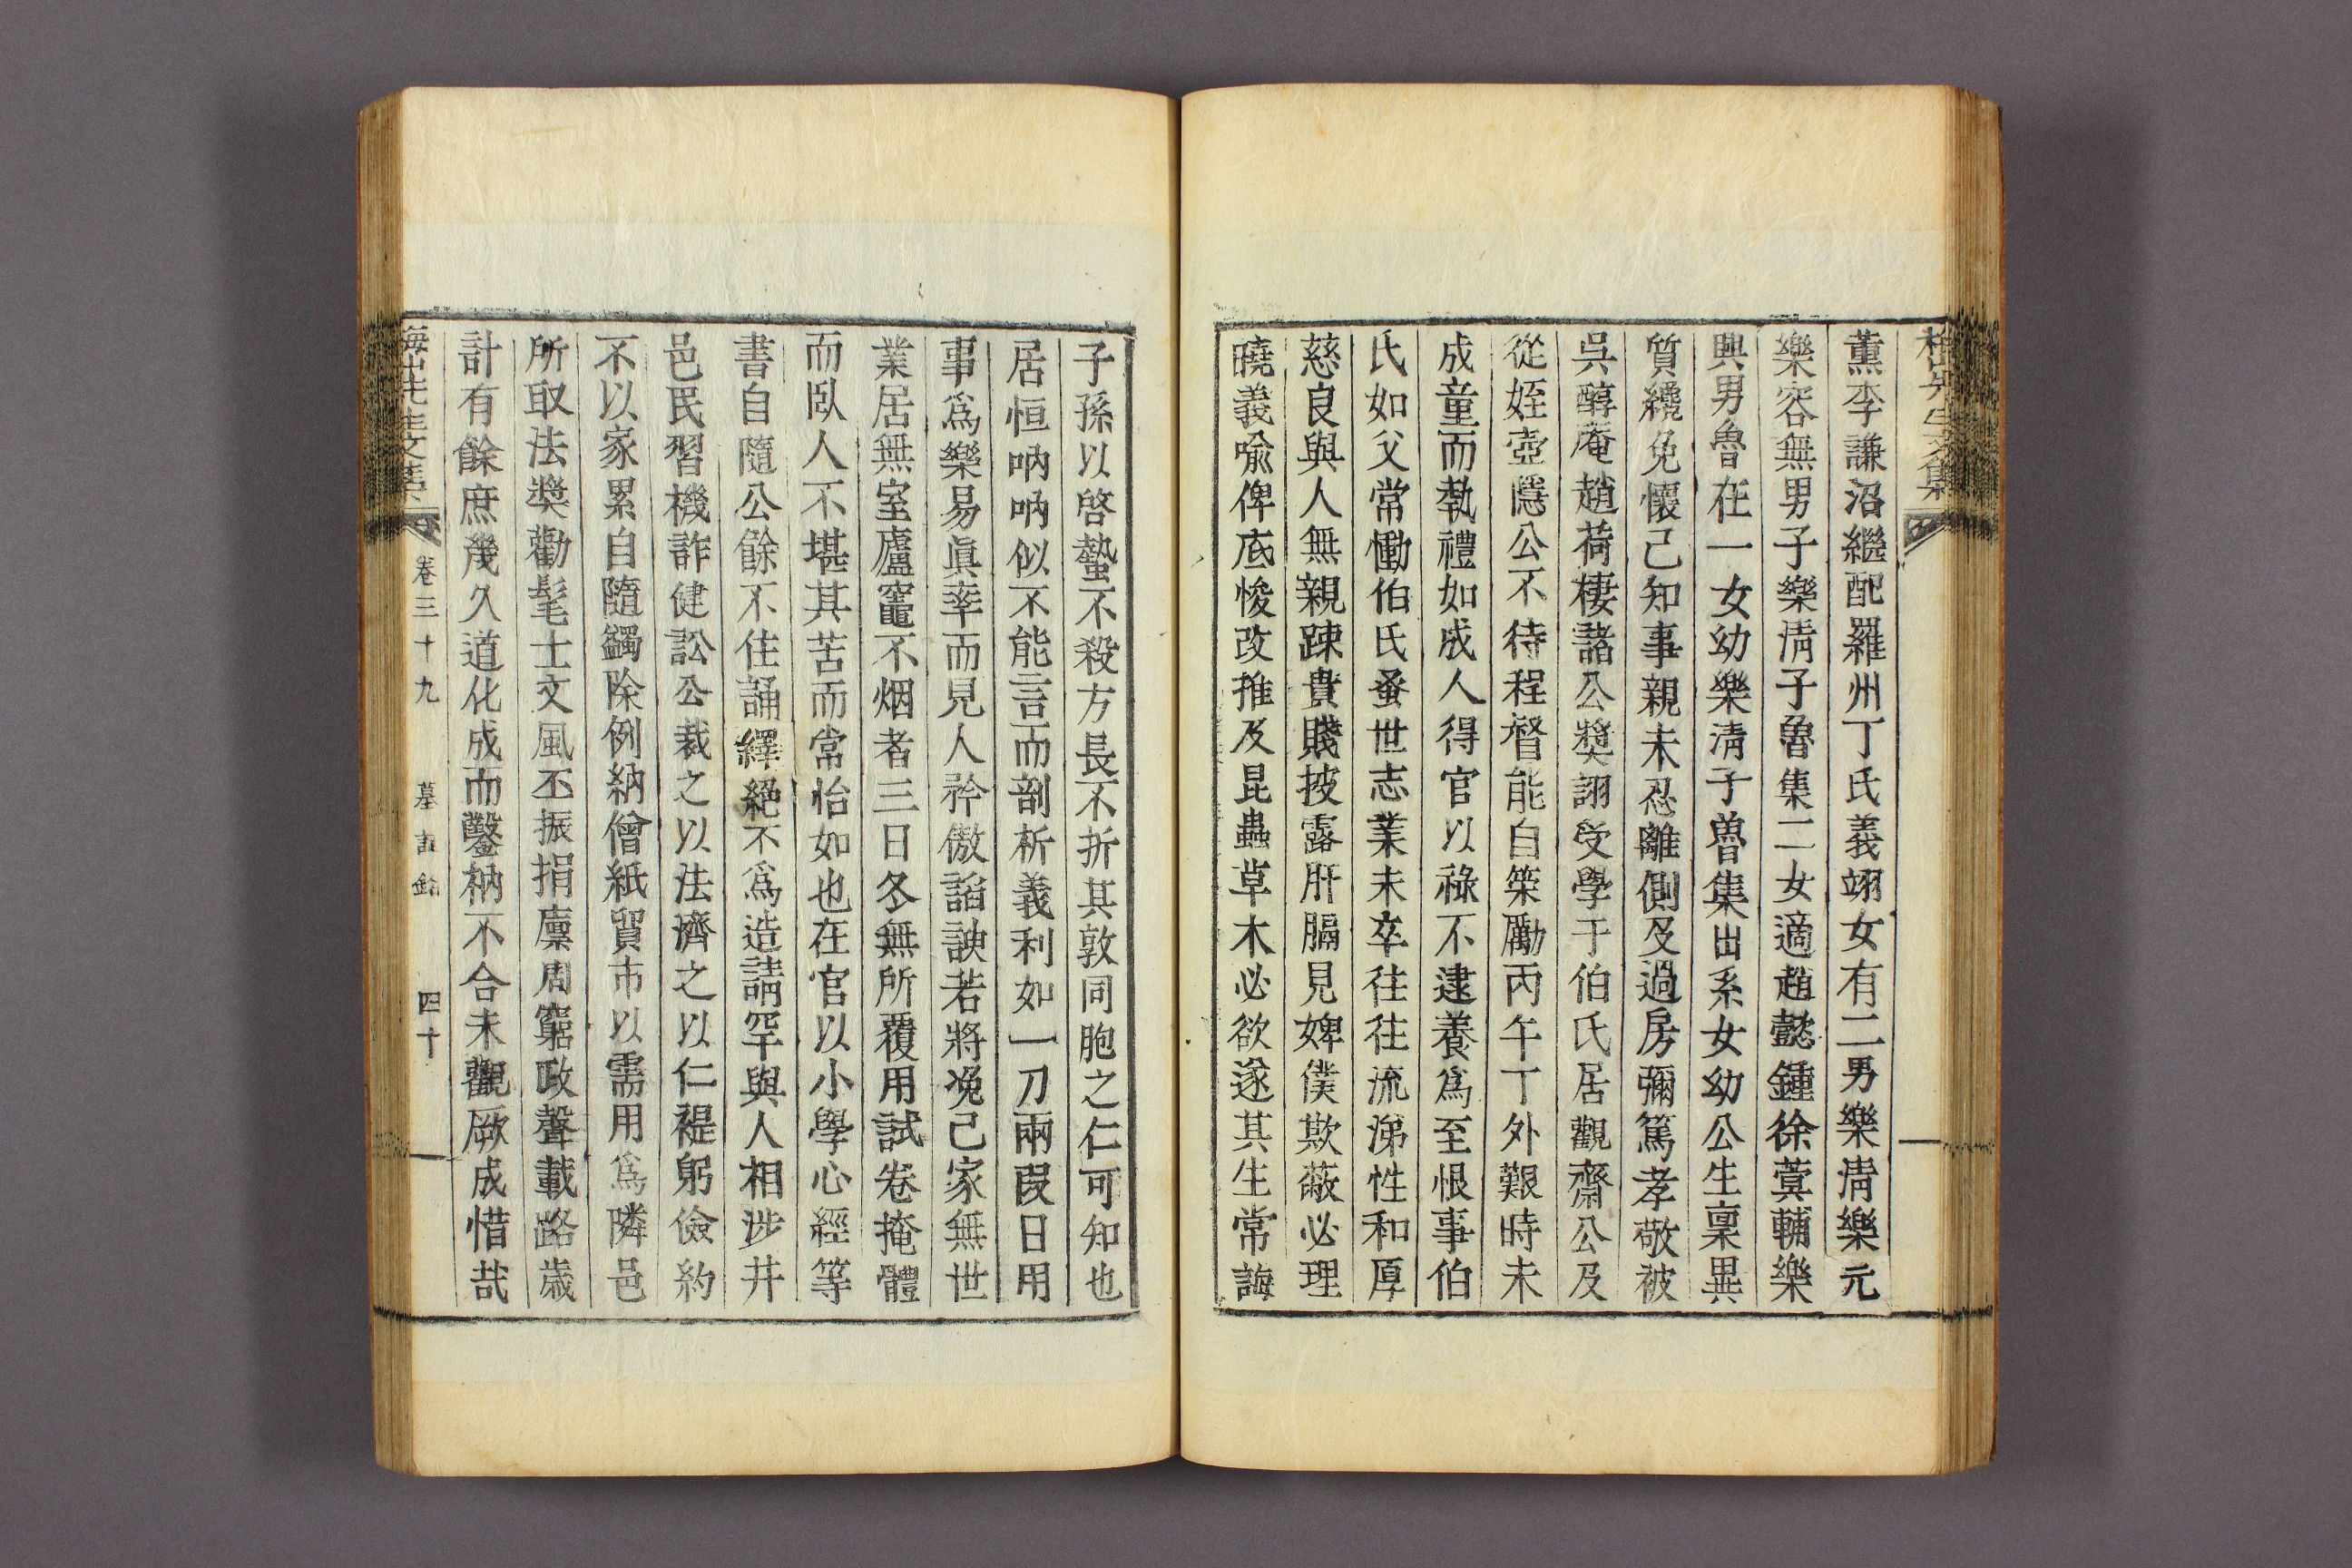 薫李謙沼繼配羅州丁氏義翊女有二男樂淸樂元
樂容無男子樂淸子魯集二女適趙懿鍾徐蓂輔樂
興男魯在一女幼樂淸子魯集出系女幼公生稟異
質纔免懷己知事親未忍離側及過房彌篤孝敬被
吳醇庵趙荷棲諸公奬詡受學于伯氏居觀齋公及
從姪壺隱公不待程督能自築勵丙午丁外艱時未
成童而執禮如成人得官以祿不逮養爲至恨事伯
氏如父常慟伯氏蚤世志業未卒往往流涕性和厚
慈良與人無親踈貴賤披露肝膈見婢僕欺蔽必理
曉義喩俾底悛改推及昆蟲草木必欲遂其生常誨
子孫以啓蟄不殺方長不折其敦同胞之仁可知也
居恒吶吶似不能言而剖析義利如一刀兩段日用
事爲樂易眞率而見人矜傲謟諛若將浼己家無世
業居無室廬竈不烟者三日冬無所覆用試卷掩體
而臥人不堪其苦而常怡如也在官以小學心經等
書自隨公餘不住誦繹絕不爲造請罕與人相涉井
邑民習機詐健訟公裁之以法濟之以仁褆躬儉約
不以家累自隨蠲除例納僧紙貿市以需用爲隣邑
所取法奬勸髦士文風丕振捐廩周窮政聲載路歲
計有餘庶幾久道化成而鑿枘不合未觀厥成惜哉
先生文集 卷三十九 墓誌銘 四十